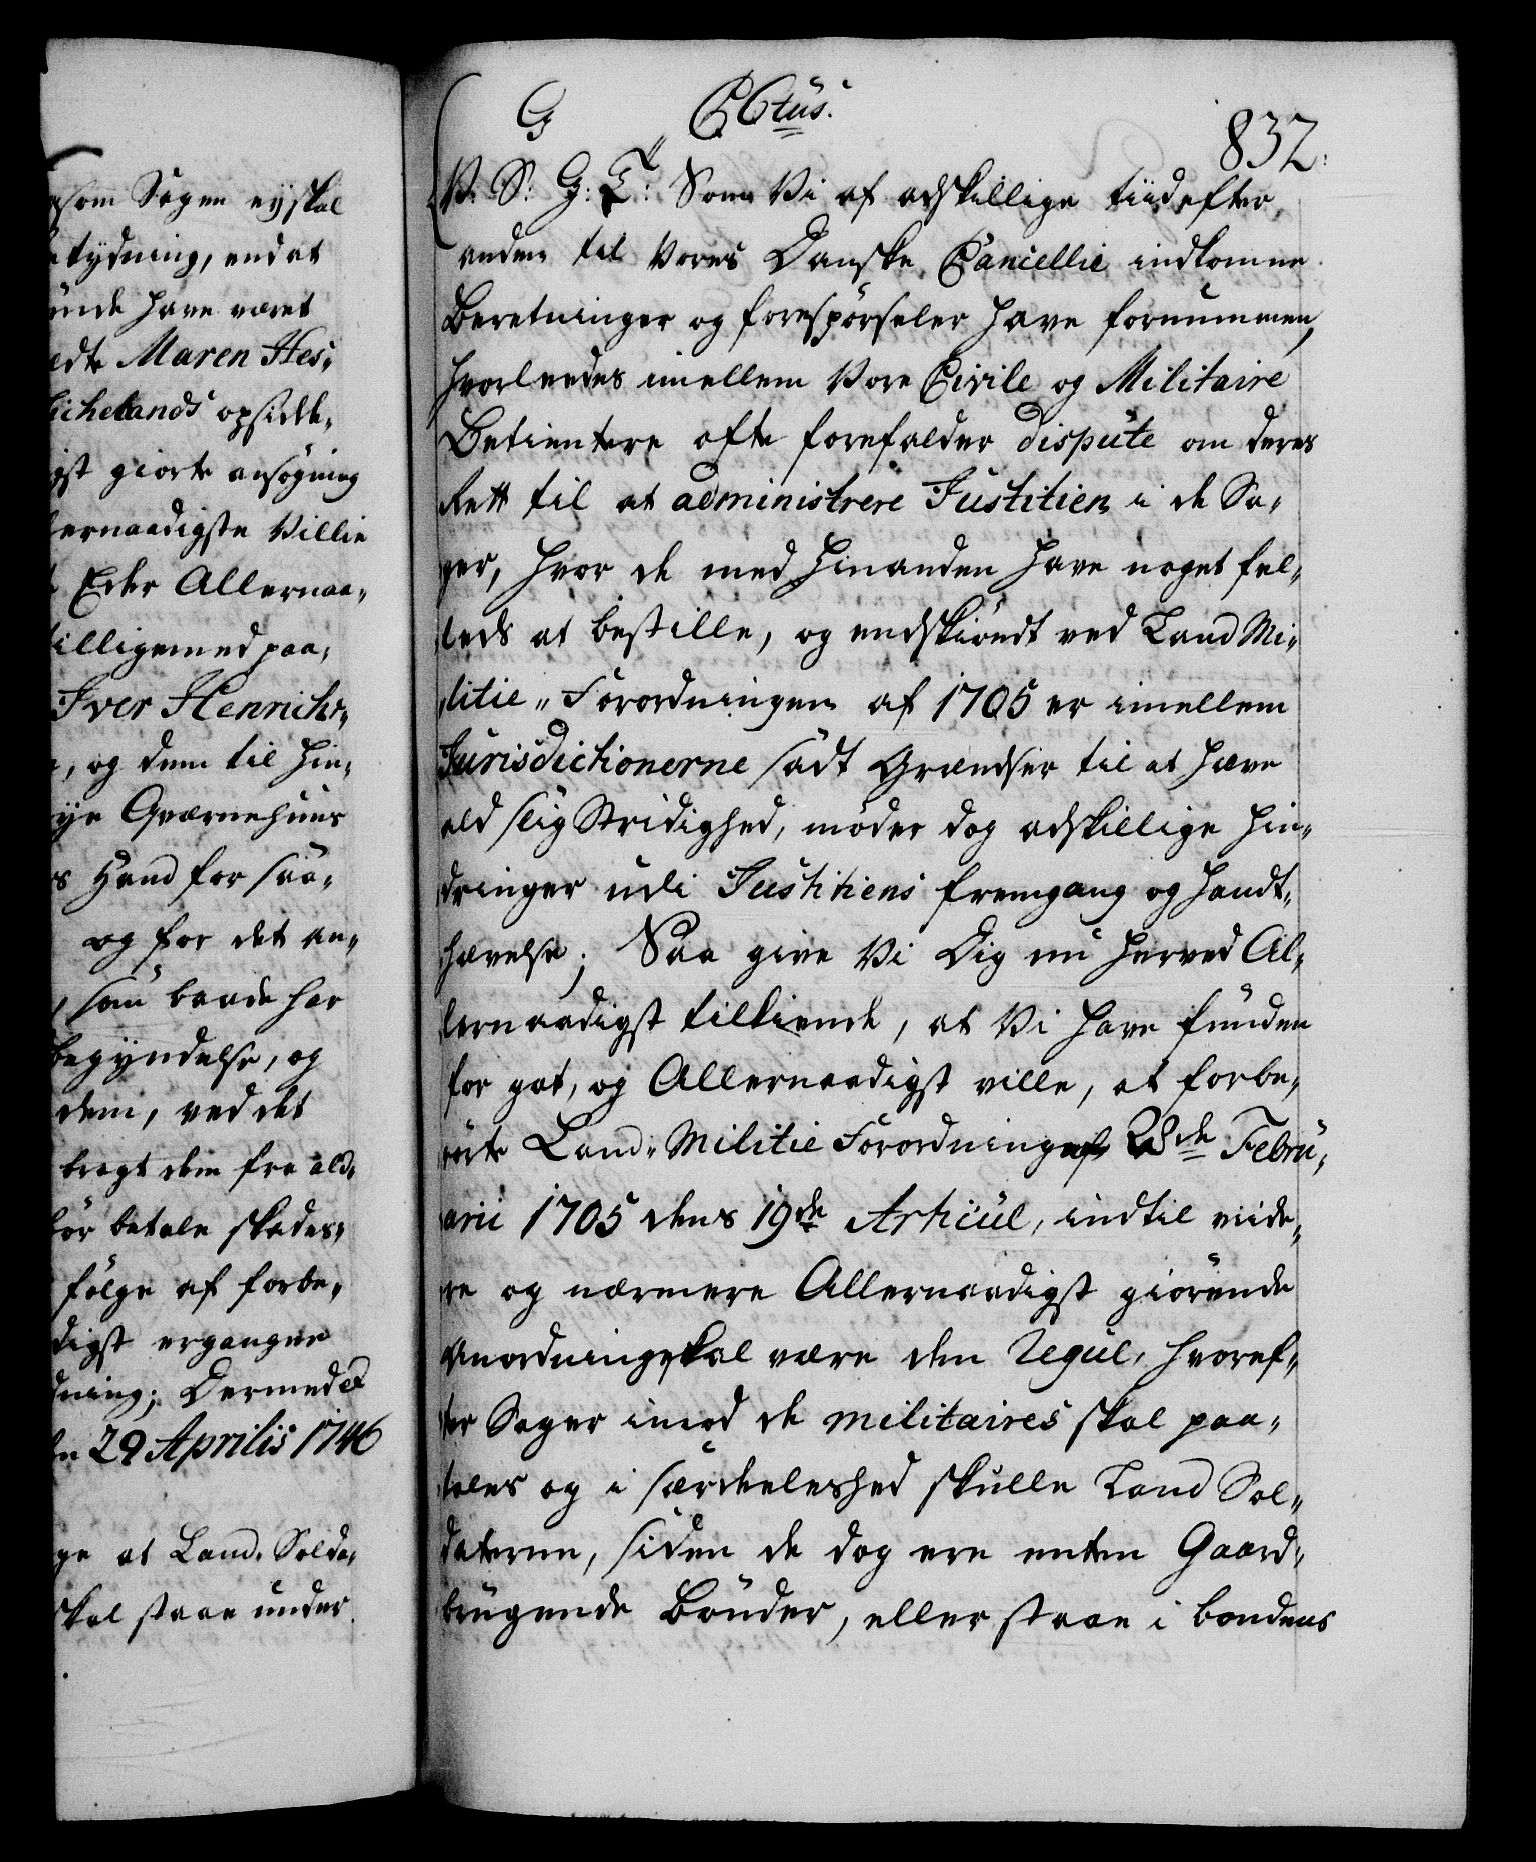 som Sagen ey skal
tydning, end at
unde have været
edte Maren Hes„
lichelands opsidde„
igst giorte ansøgning
lernaadigste Villie
Eder Allernaa„
tilligemed paa„
Iver Henrichs„
, og dem til Hin„
ye Qværnehuus
s Haand for saa„
og for det an„
, som baade har
begyndelse, og
dem, ved det
bragt dem fra ald„
bør betale skades„
følge af forbe„
digst ergangne
dning; Dermed &
en 29 Aprilis 1746
ge at Land-Solda„
skal staae under
G
C6tus.
832.
V: S: G: T: Som Vi af adskillige tiid efter
anden til Vores Danske Cancellie indkomne
Beretninger og forespørseler have fornummen,
hvorleedes imellem Vore Civile og Militaire
Betientere ofte forefalder dispute om deres
Rett til at administrere Justitien i de Sa„
ger, hvor de med hinanden have noget fel„
leds at bestille, og endskiøndt ved Land Mi„
litie„ Forordningen af 1705 er imellem
Jurisdictionerne sadt Grændser til at hæve
ald slig Stridighed, møder dog adskillige hin„
dringer udi Justitiens fremgang og handt„
hævelse; Saa give Vi Dig nu herved Al„
lernaadigst tilkiende, at Vi have funden
for got, og Allernaadigst ville, at forbe„
rørte Land„ Militie Forordning af 28de Febru„
arii 1705 dens 19de Articul, indtil viide„
re og nærmere Allernaadigst giørende
Anordning skal være den Regul, hvoref„
ter Sager imod de militaires skal paa„
tales og i særdeleshed skulle Land Sol„
daterne, siden de dog ere enten Gaard„
brugende Bønder, eller staae i bondens